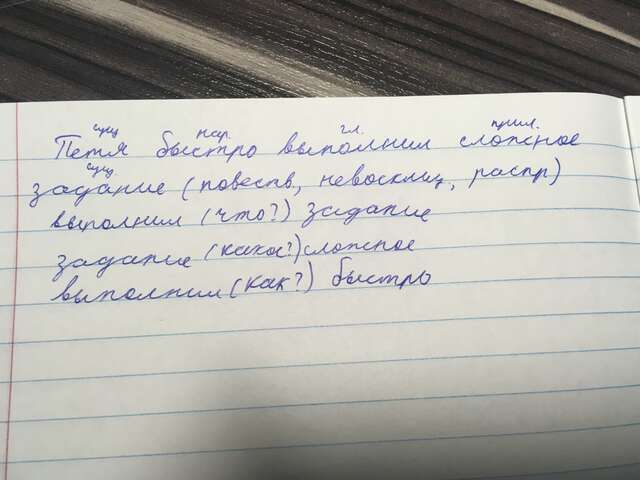 сущ нар. гл. прил.
Петя быстро выполнил сложное
сущ
задание (повеств, невосклиц, распр)
выполнил (что?) задание
задание (какое?) сложное
выполнил (как?) быстро